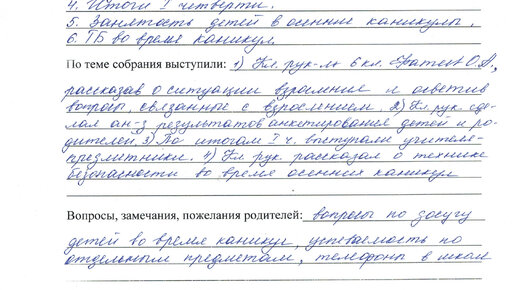 4. Итоги I четверти.
5. Занятость детей в осенние каникулы.
6. ТБ во время каникул.
По теме собрания выступили: 1) Кл. рук-ль 6 кл.
рассказав о ситуации взросления и ответив
вопросы, связанные с взрослением. 2) Кл. рук. сде-
лал ан-з результатов анкетирования детей и ро-
дителей. 3) По итогам I ч. выступали учителя-
предметники. 4) Кл рук. рассказал о технике
безопасности во время осенних каникул
Вопросы, замечания, пожелания родителей: вопросы по досугу
детей во время каникул, успеваемость по
отдельным предметам, телефоны в школе